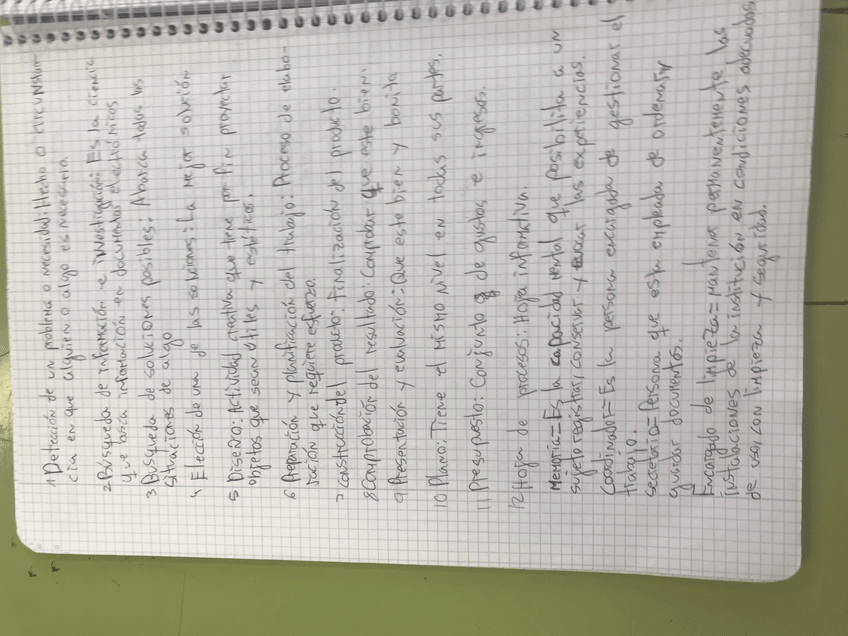 1 Detección de un problema o necesidad: Hecho o circunstan-
cia en que alguien o algo es necesario.
2 Búsqueda de información e investigación: Es la ciencia
que busca información en documentos electrónicos
3 Busqueda de soluciones posibles: Abarca todas las
situaciones de algo
4 Elección de una de las soluciones: La mejor solución
5 Diseño: Actividad creativa que tiene por fin proyectar
objetos que sean útiles y estéticos.
6 Preparación y planificación del trabajo: Proceso de elabo-
ración que requiere esfuerzo.
7 Construcción del producto: Finalización del producto.
8 Comprobación del resultado: Comprobar que este bien.
9 Presentación y evaluación: Que este bien y bonita
10 Plano: Tiene el mismo nivel en todas sus partes.
11 Presupuesto: Conjunto de gustos e ingresos.
12 Hoja de procesos: Hoja informativa.
Memoria= Es la capacidad mental que posibilita a un
sujeto registrar, conservar y evocar las experiencias.
Coordinador= Es la persona encargada de gestionar el
trabajo.
secretario= Persona que esta empleada de ordenar y
guardar documentos.
Encargado de limpieza= Mantener permanentemente las
instalaciones de la institución en condiciones adecuadas
de uso, con limpieza y seguridad.